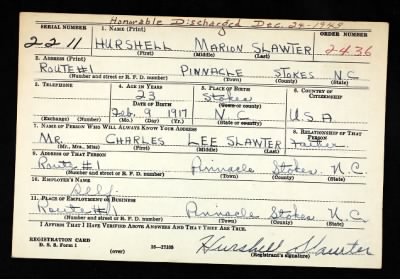 Honorable Discharged Dec. 24-1945
SERIAL NUMBER 1. NAME (Print) ORDER NUMBER
2211 HURSHELL MARION SLAWTER 2436
(First) (Middle) (Last)
2. ADDRESS (Print)
ROUTE #1 PINNACLE STOKES N.C.
(Number and street or R. F. D. number) (Town) (County) (State)
3. TELEPHONE 4. AGE IN YEARS 5. PLACE OF BIRTH 6. COUNTRY OF CITIZENSHIP
23 Stokes
DATE OF BIRTH (Town or county)
Feb. 9 1917 N.C. U.S.A
(Exchange) (Number) (Mo.) (Day) (Yr.) (State or country)
7. NAME OF PERSON WHO WILL ALWAYS KNOW YOUR ADDRESS 8. RELATIONSHIP OF THAT PERSON
MR. CHARLES LEE SLAWTER Father
(Mr., Mrs., Miss) (First) (Middle) (Last)
9. ADDRESS OF THAT PERSON
Route #1 Pinnacle Stokes N.C.
(Number and street or R. F. D. number) (Town) (County) (State)
10. EMPLOYER'S NAME
Self.
11. PLACE OF EMPLOYMENT OR BUSINESS
Route #1 Pinnacle Stokes N.C.
(Number and street or R. F. D. number) (Town) (County) (State)
I AFFIRM THAT I HAVE VERIFIED ABOVE ANSWERS AND THAT THEY ARE TRUE.
REGISTRATION CARD
D. S. S. Form 1 (over) 16-17105 Hurshell Slawter
(Registrant's signature)